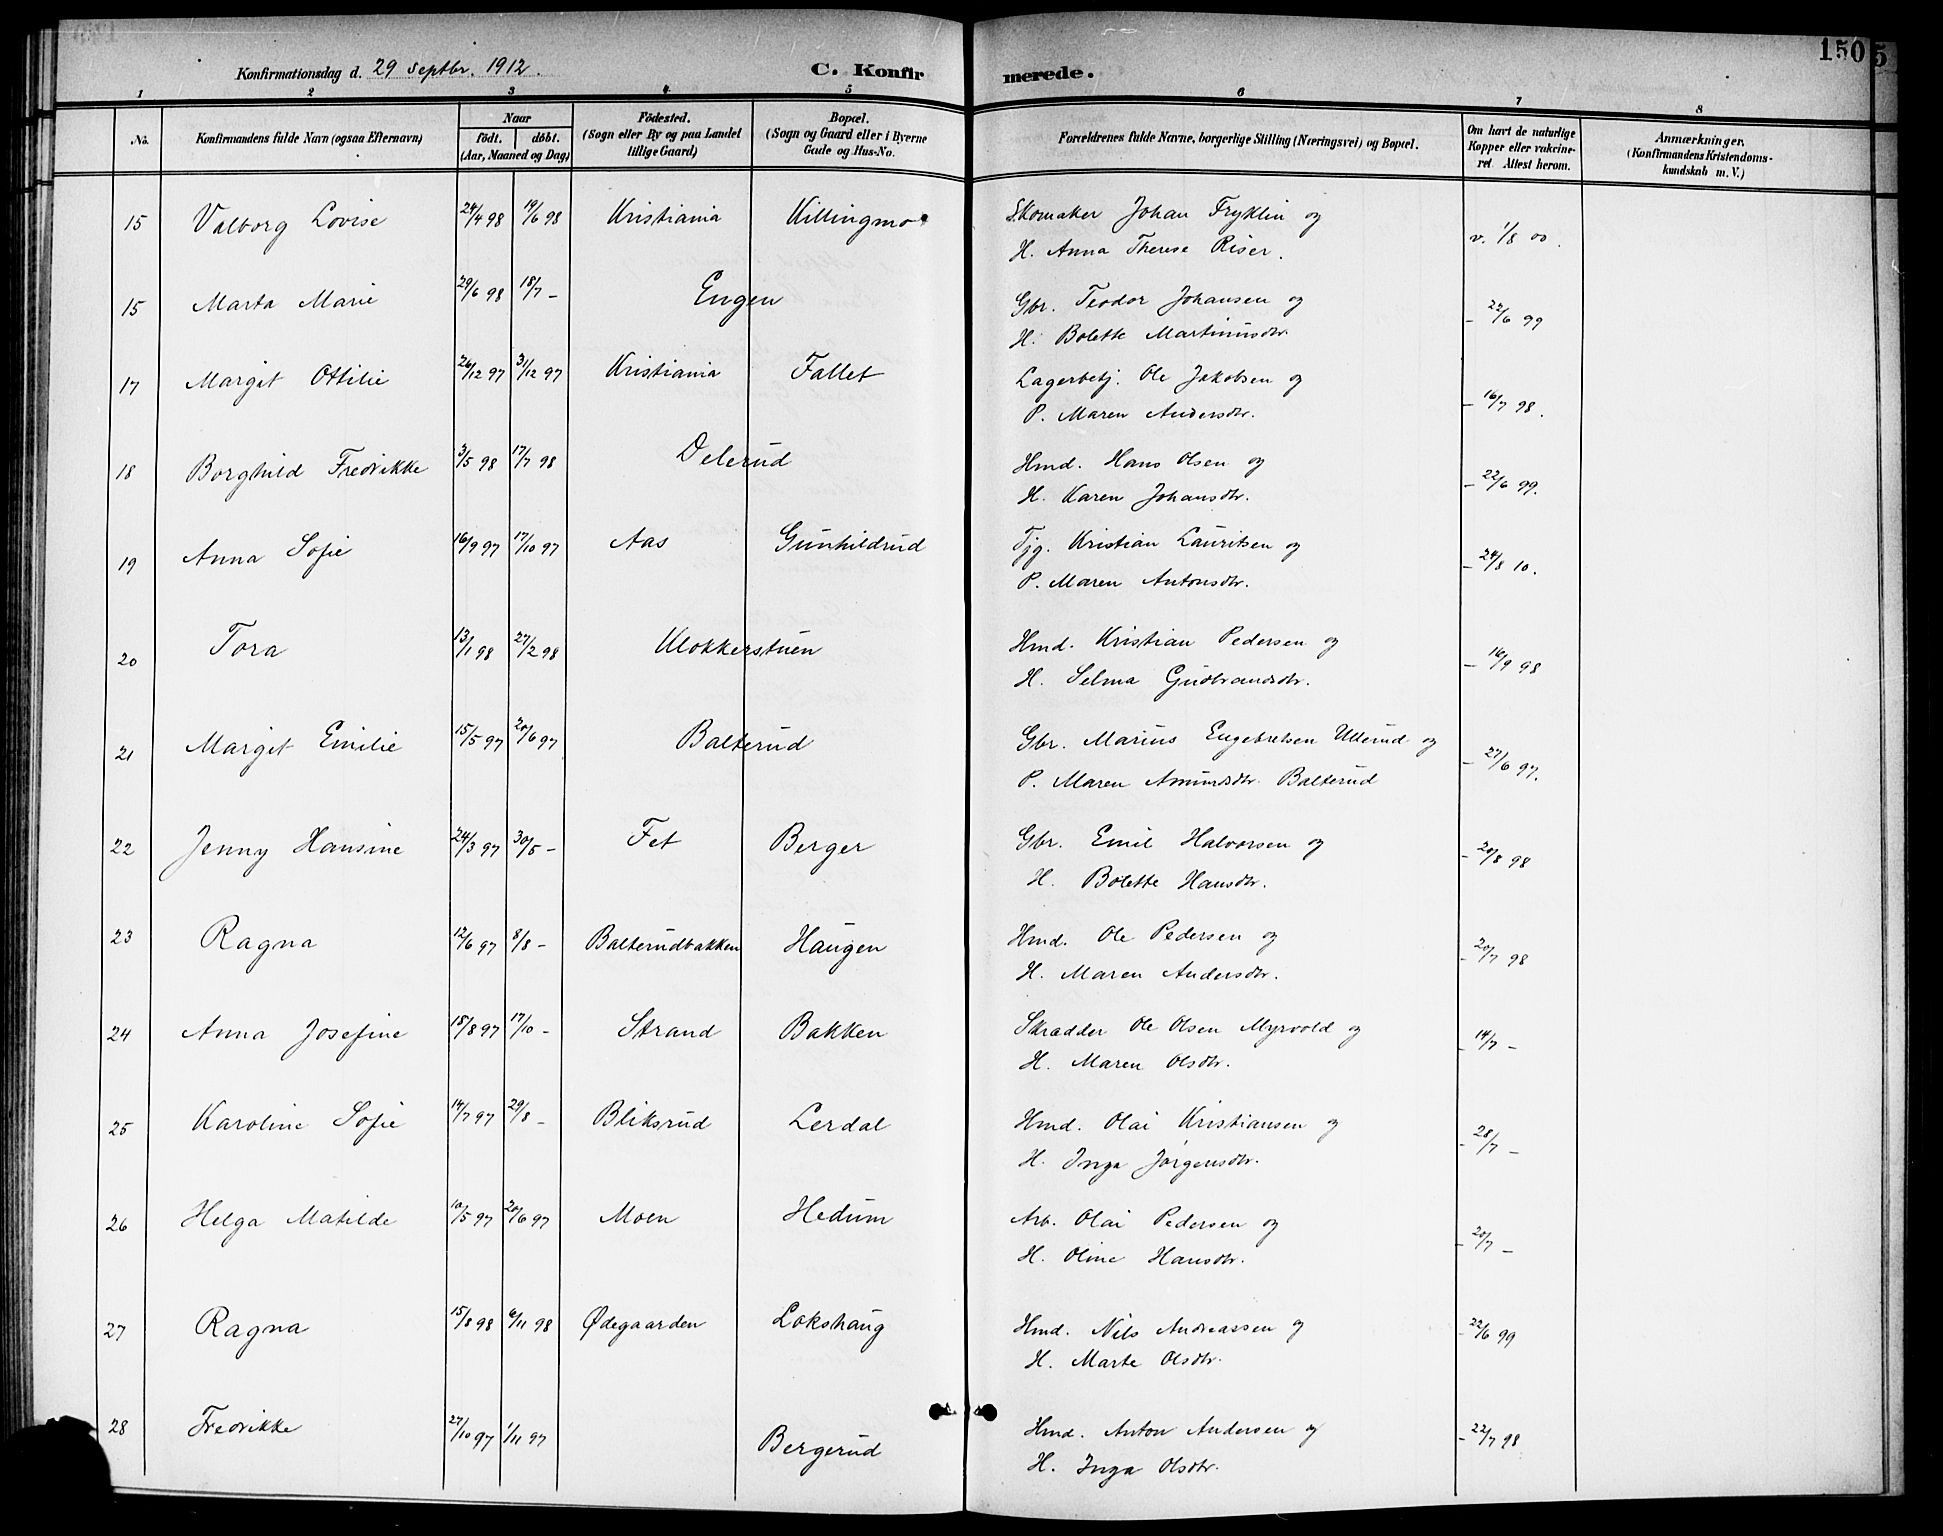 150 5
Konfirmationsdag d. 29 Septbr. 1912.
C. Konfirmerede.
1 2 3 4 5 6 7 8
No. Konfirmandens fulde Navn (ogsaa Efternavn) Naar födt. döbt. (Aar, Maaned og Dag) Födested. (Sogn eller By og paa Landet tillige Gaard) Bopæl. (Sogn og Gaard eller i Byerne Gade og Hus-No. Forældrenes fulde Navne, borgerlige Stilling (Næringsvei) og Bopæl. Om havt de naturlige Kopper eller vakcineret. Attest herom. Anmærkninger. (Konfirmandens Kristendomskundskab m. V.)
15 Valborg Lovise 24/4 98 19/6 98 Kristiania Killingmo Skomaker Johan Fryklin og
H. Anna Therese Riser. v. 1/8 00.
15 Marta Marie 29/6 98 18/7 - Engen Gbr. Teodor Johansen og
H. Bolette Martinusdtr. - 22/6 99
17 Margit Ottilie 26/12 97 31/12 97 Kristiania Fallet Lagerbetj. Ole Jakobsen og
P. Maren Andersdtr. - 16/7 98.
18 Borghild Fredrikke 3/5 98 17/7 98 Delerud Hmd. Hans Olsen og
H. Karen Johansdtr. - 22/6 99.
19 Anna Sofie 16/9 97 17/10 97 Aas Gunhildrud Tjg. Kristian Lauritsen og
P. Maren Antonsdtr. - 24/8 10.
20 Tora 13/1 98 27/2 98 Klokkerstuen Hmd. Kristian Pedersen og
H. Selma Gudbrandsdtr. - 16/9 98
21 Margit Emilie 15/5 97 20/6 97 Balterud Gbr. Marius Engebretsen Ullerud og
P. Maren Amundsdtr. Balterud - 27/6 97.
22 Jenny Hansine 24/3 97 30/5 - Fet Berger Gbr. Emil Halvorsen og
H. Bolette Hansdtr. - 20/8 98
23 Ragna 12/6 97 8/8 - Balterudbakken Haugen Hmd. Ole Pedersen og
H. Maren Andersdtr. - 20/7 98
24 Anna Josefine 18/8 97 17/10 - Strand Bakken Skrædder Ole Olsen Myrvold og
H. Maren Olsdtr. - 14/7 -
25 Karoline Sofie 14/7 97 29/8 - Bliksrud Lerdal Hmd. Olai Kristiansen og
H. Inga Jørgensdtr. - 28/7 -
26 Helga Matilde 10/5 97 20/6 97 Moen Hedum Arb. Olai Pedersen og
H. Oline Hansdtr. - 20/7 -
27 Ragna 15/8 98 6/11 98 Ødegaarden Lokshaug Hmd. Nils Andreassen og
H. Marte Olsdtr. - 22/6 99
28 Fredrikke 27/10 97 1/11 97 Bergerud Hmd. Anton Andersen og
H. Inga Olsdtr. - 22/7 98